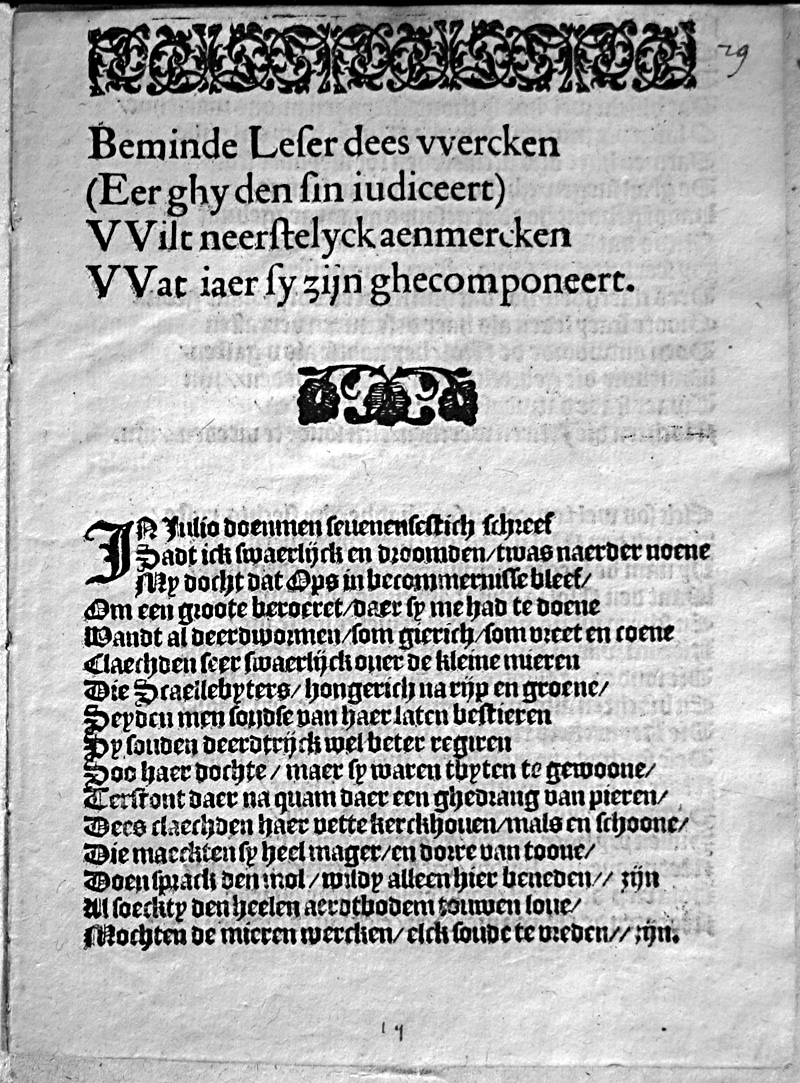 29
Beminde Leſer dees vvercken
(Eer ghy den ſin iudiceert)
VVilt neerſtelyck aenmercken
VVat iaer ſy zijn ghecomponeert.
IN Julio doenmen ſeuenenſeſtich ſchreef
Sadt ick ſwaerlijck en droomden/twas naerder noene
My docht dat Ops in becommerniſſe bleef/
Om een groote beroeret/daer ſy me had te doene
Wandt al deerdwormen/ſom gierich/ſom vreet en coene
Claechden ſeer ſwaerlijck ouer de kleine mieren
Die Scaellebyters/ hongerich na rijp en groene/
Seyden men ſoudſe van haer laten beſtieren
Sy ſouden deerdtrijck wel beter regiren
Soo haer dochte / maer ſy waren tbyten te gewoone/
Terſtont daer na quam daer een ghedrang van pieren/
Dees claechden haer vette kerckhouen/mals en ſchoone/
Die maeckten ſy heel mager/en dorre van toone/
Doen ſprack den mol/wildy alleen hier beneden// zijn
Al ſoeckty den heelen aerdtbodem touwen loue/
Mochten de mieren wercken/ elck ſoude te vreden// zijn.